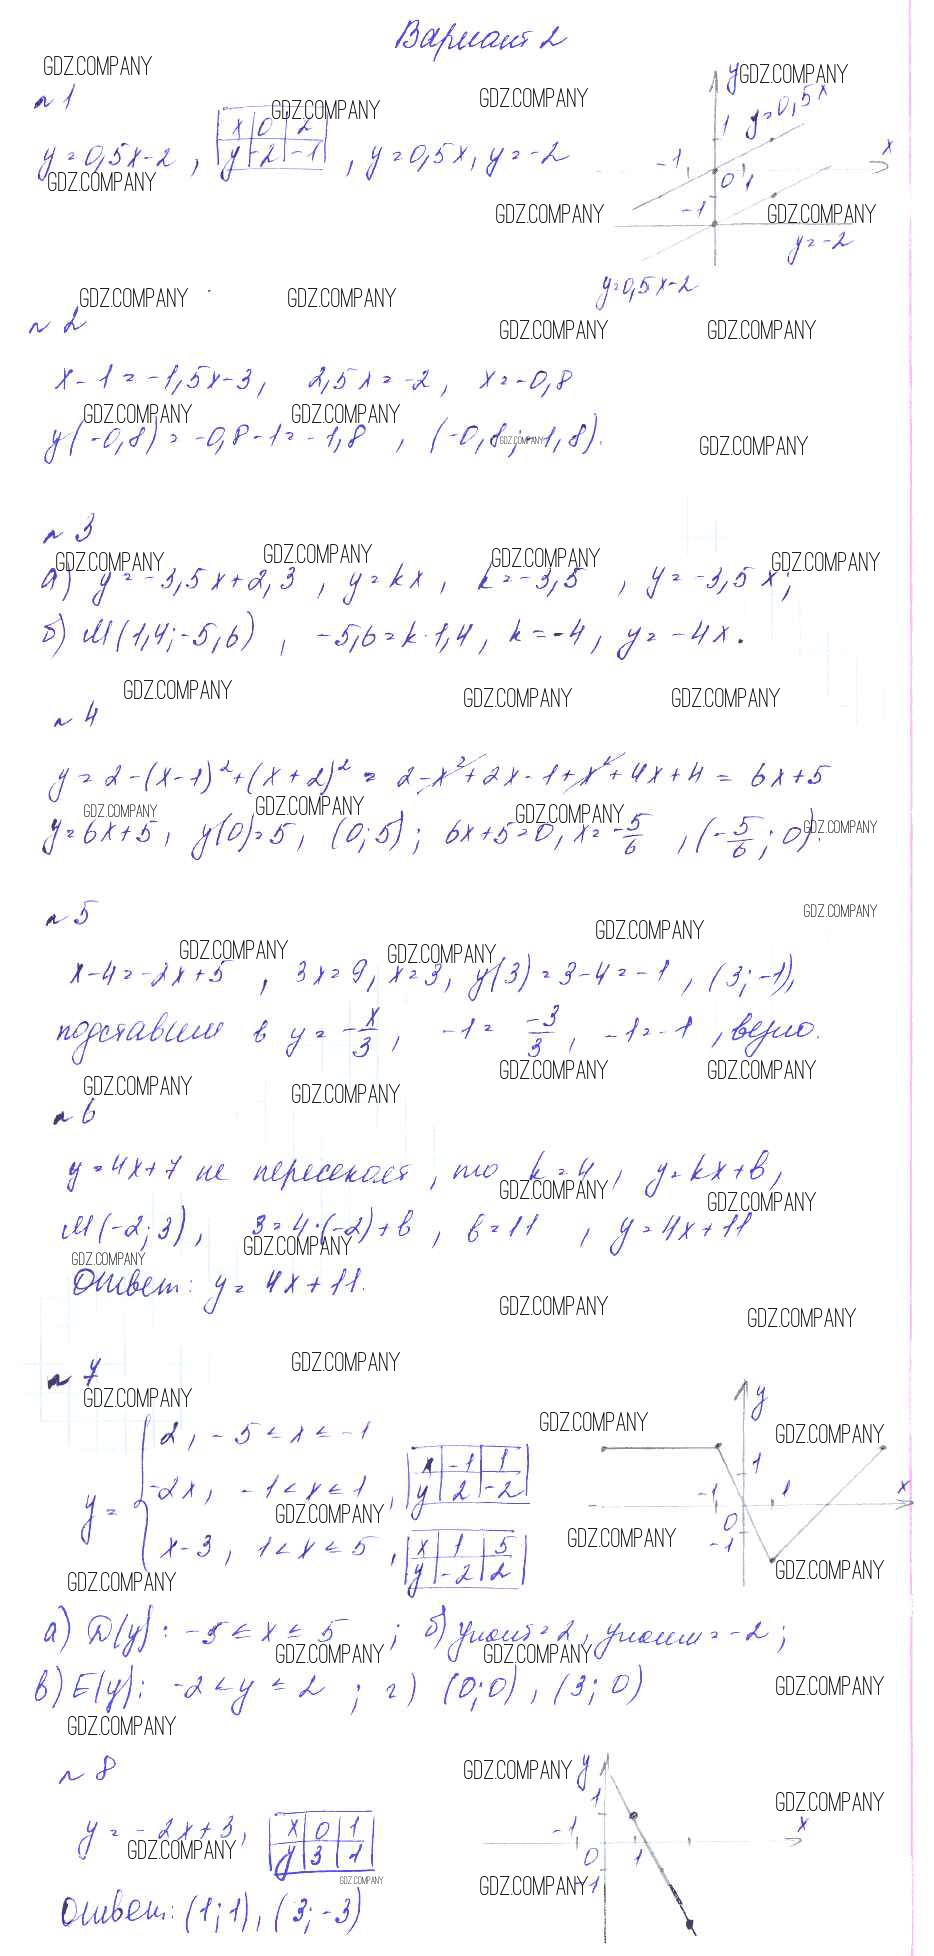 Вариант 2
№ 1
y = 0,5x - 2 , x 0 2 , y = 0,5x, y = -2
y -2 -1
y
y = 0,5x
1
-1
x
0 1
-1
y = -2
y = 0,5x - 2
№ 2
x - 1 = -1,5x - 3, 2,5x = -2, x = -0,8
y(-0,8) = -0,8 - 1 = -1,8 , (-0,8; -1,8).
№ 3
а) y = -3,5x + 2,3 , y = kx , k = -3,5 , y = -3,5x;
б) M(1,4; -5,6) , -5,6 = k·1,4, k = -4, y = -4x.
№ 4
y = 2 - (x-1)² + (x+2)² = 2 - x² + 2x - 1 + x² + 4x + 4 = 6x + 5
y = 6x + 5, y(0) = 5, (0; 5); 6x + 5 = 0, x = -5/6 , (-5/6; 0).
№ 5
x - 4 = -2x + 5 , 3x = 9, x = 3, y(3) = 3 - 4 = -1 , (3; -1),
подставим в y = -x/3, -1 = -3/3, -1 = -1 , верно.
№ 6
y = 4x + 7 не пересекает, то k = 4, y = kx + b,
M(-2; 3), 3 = 4·(-2) + b, b = 11 , y = 4x + 11
Ответ: y = 4x + 11.
№ 7
y =
2, -5 ≤ x ≤ -1
-2x, -1 < x ≤ 1 , x -1 1
y 2 -2
x - 3, 1 < x ≤ 5 , x 1 5
y -2 2
y
1
-1
1
x
0
-1
а) D(y): -5 ≤ x ≤ 5 ; б) yнаиб = 2, yнаим = -2;
в) E(y): -2 ≤ y ≤ 2 ; г) (0; 0), (3; 0)
№ 8
y = -2x + 3, x 0 1
y 3 1
y
1
-1
x
0 1
-1
Ответ: (1; 1), (3; -3)
GDZ.COMPANY